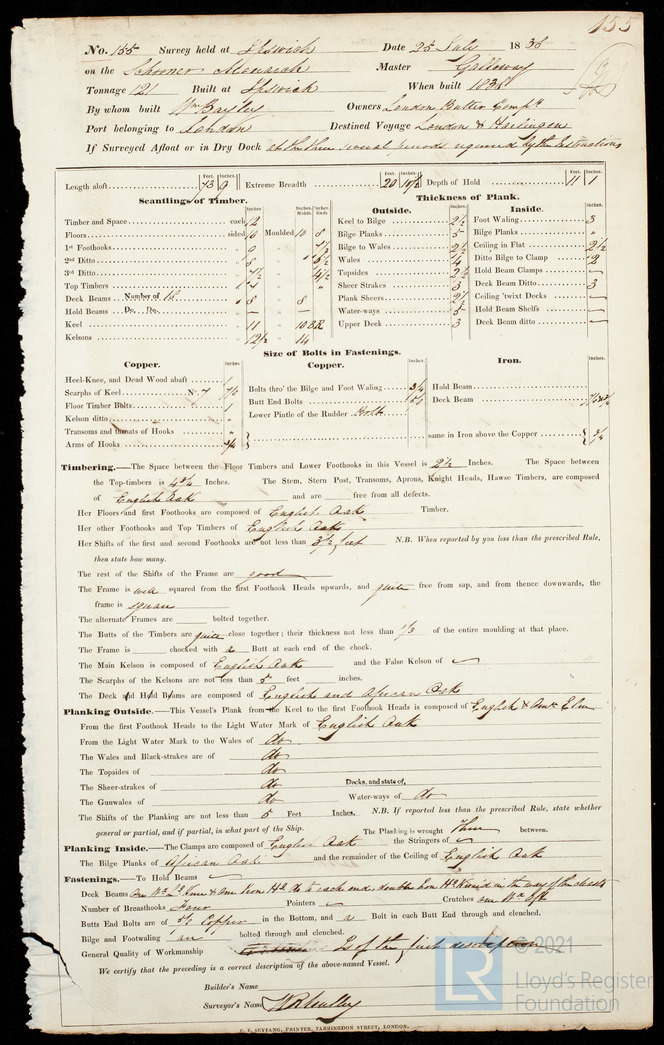 155
No. 155 Survey held at Ipswich Date 25 July 1838
on the Schooner Monarch Master Galloway
Tonnage 121 Built at Ipswich When built 1838
By whom built Wm Bayley Owners London Batter Compy
Port belonging to London Destined Voyage London & Harlingen
If Surveyed Afloat or in Dry Dock at the three several periods required by the Instructions
Feet. Inches. Feet. Inches. Feet. Inches.
Length aloft 73 9 Extreme Breadth 20 10 1/2 Depth of Hold 11 1
Scantlings of Timber. Thickness of Plank.
Inches. Inches. Middle Inches. Ends Outside. Inches. Inside. Inches.
Timber and Space each 12 Keel to Bilge 2 1/2 Foot Waling 3
Floors sided 10 Moulded 10 8 Bilge Planks 5 Bilge Planks "
1st Foothooks Bilge to Wales 2 1/2 Ceiling in Flat 2 1/2
2nd Ditto 8 Wales 4 Ditto Bilge to Clamp 2
3rd Ditto 7 1/2 4 1/2 Topsides 2 1/2 Hold Beam Clamps
Top Timbers Sheer Strakes 3 Deck Beam Ditto 3
Deck Beams Number of 8 8 Plank Sheers 2 1/2 Ceiling 'twixt Decks
Hold Beams Do. Do. Water-ways 5 Hold Beam Shelfs
Keel 11 10 Upper Deck 3 Deck Beam ditto
Kelsons 12 1/2 14
Size of Bolts in Fastenings.
Copper. Inches Copper. Inches Iron. Inches.
Heel-Knee, and Dead Wood abaft 1
Scarphs of Keel No. 7 7/8 Bolts thro' the Bilge and Foot Waling 3/4 Hold Beam
Floor Timber Bolts 1 Butt End Bolts 5/8 Deck Beam
Kelson ditto " Lower Pintle of the Rudder Bolts
Transoms and throats of Hooks "
Arms of Hooks 3/4 same in Iron above the Copper 3/4
Timbering.—The Space between the Floor Timbers and Lower Foothooks in this Vessel is 2 1/2 Inches. The Space between
the Top-timbers is 4 3/4 Inches. The Stem, Stern Post, Transoms, Aprons, Knight Heads, Hawse Timbers, are composed
of English Oak and are free from all defects.
Her Floors and first Foothooks are composed of English Oak Timber.
Her other Foothooks and Top Timbers of English Oak
Her Shifts of the first and second Foothooks are not less than 3 1/2 feet N.B. When reported by you less than the prescribed Rule,
then state how many.
The rest of the Shifts of the Frame are good
The Frame is well squared from the first Foothook Heads upwards, and quite free from sap, and from thence downwards, the
frame is square
The alternate Frames are bolted together.
The Butts of the Timbers are quite close together; their thickness not less than 1/3 of the entire moulding at that place.
The Frame is chocked with a Butt at each end of the chock.
The Main Kelson is composed of English Oak and the False Kelson of
The Scarphs of the Kelsons are not less than 5 feet inches.
The Deck and Hold Beams are composed of English and African Oak
Planking Outside.—This Vessel's Plank from the Keel to the first Foothook Heads is composed of English & Amn Elm
From the first Foothook Heads to the Light Water Mark of English Oak
From the Light Water Mark to the Wales of do
The Wales and Black-strakes are of do
The Topsides of do
The Sheer-strakes of do Decks, and state of,
The Gunwales of do Water-ways of do
The Shifts of the Planking are not less than 5 Feet Inches. N.B. If reported less than the prescribed Rule, state whether
general or partial, and if partial, in what part of the Ship. The Planking is wrought Three between.
Planking Inside.—The Clamps are composed of English Oak the Stringers of
The Bilge Planks of African Oak and the remainder of the Ceiling of English Oak
Fastenings.—To Hold Beams
Deck Beams
Number of Breasthooks Four Pointers Crutches one
Butts End Bolts are of 5/8 Copper in the Bottom, and a Bolt in each Butt End through and clenched.
Bilge and Footwaling are bolted through and clenched.
General Quality of Workmanship 2 of the first description
We certify that the preceding is a correct description of the above-named Vessel.
Builder's Name
Surveyor's Name
C. F. SEYFANG, PRINTER, FARRINGDON STREET, LONDON.
LR © 2021
Lloyd's Register
Foundation